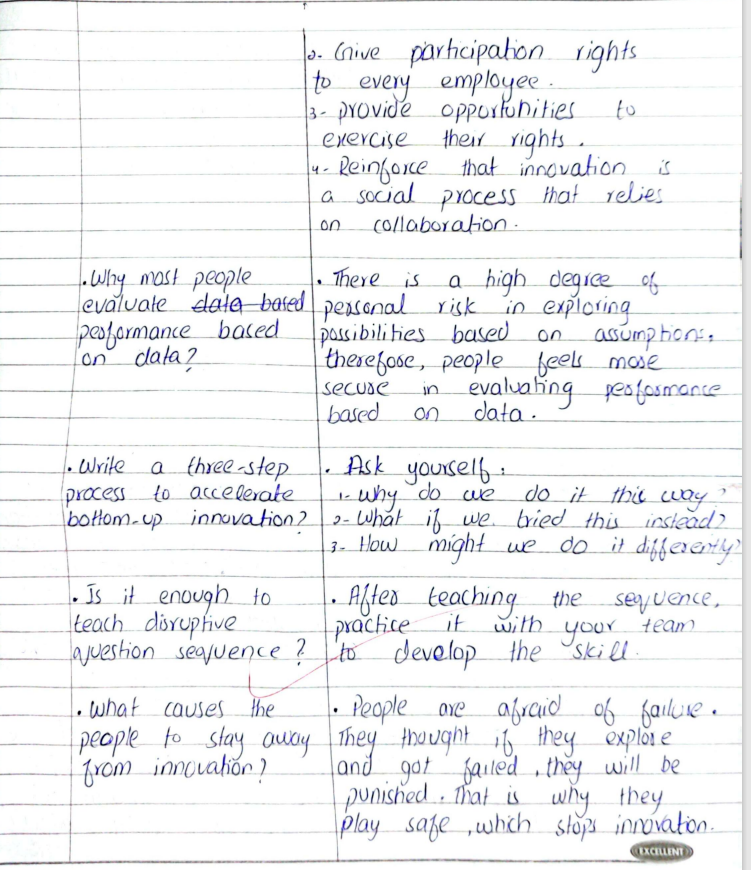 2- Give participation rights
to every employee.
3- provide opportunities to
exercise their rights.
4- Reinforce that innovation is
a social process that relies
on collaboration.
. Why most people
evaluate data based
performance based
on data?
. There is a high degree of
personal risk in exploring
possibilities based on assumptions,
therefore, people feels more
secure in evaluating performance
based on data.
. Write a three-step
process to accelerate
bottom-up innovation?
. Ask yourself:
1- Why do we do it this way?
2- What if we tried this instead?
3- How might we do it differently?
. Is it enough to
teach disruptive
question sequence?
. After teaching the sequence,
practice it with your team
to develop the skill.
. What causes the
people to stay away
from innovation?
. People are afraid of failure.
They thought if they explore
and got failed, they will be
punished. That is why they
play safe, which stops innovation.
EXCELLENT